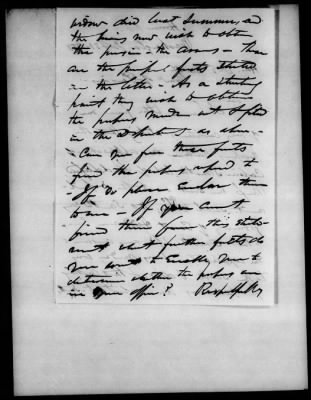 widow died last Summer, and
the heirs now wish to obtain
the pension in the arrears - these
are the facts stated
in the letter - As a starting
point they wish to obtain
the papers made at
in the as above -
- Can you from these facts
find the papers refered to
- If so please Enclose them
to me - If you cannot
find them from this state-
ment what further facts do
you want to Enable you to
determine whether the papers are
in your office? Respectfully